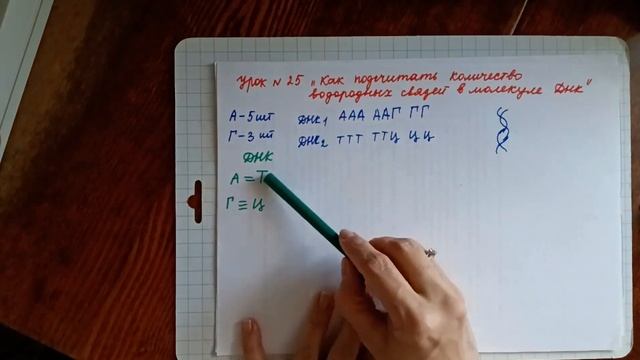 Урок N 25 „Как подсчитать количество
водородных связей в молекуле ДНК"
А-5 шт ДНК₁ ААА ААГ ГГ
Г-3 шт ДНК₂ ТТТ ТТЦ ЦЦ
ДНК
А = Т
Г ≡ Ц